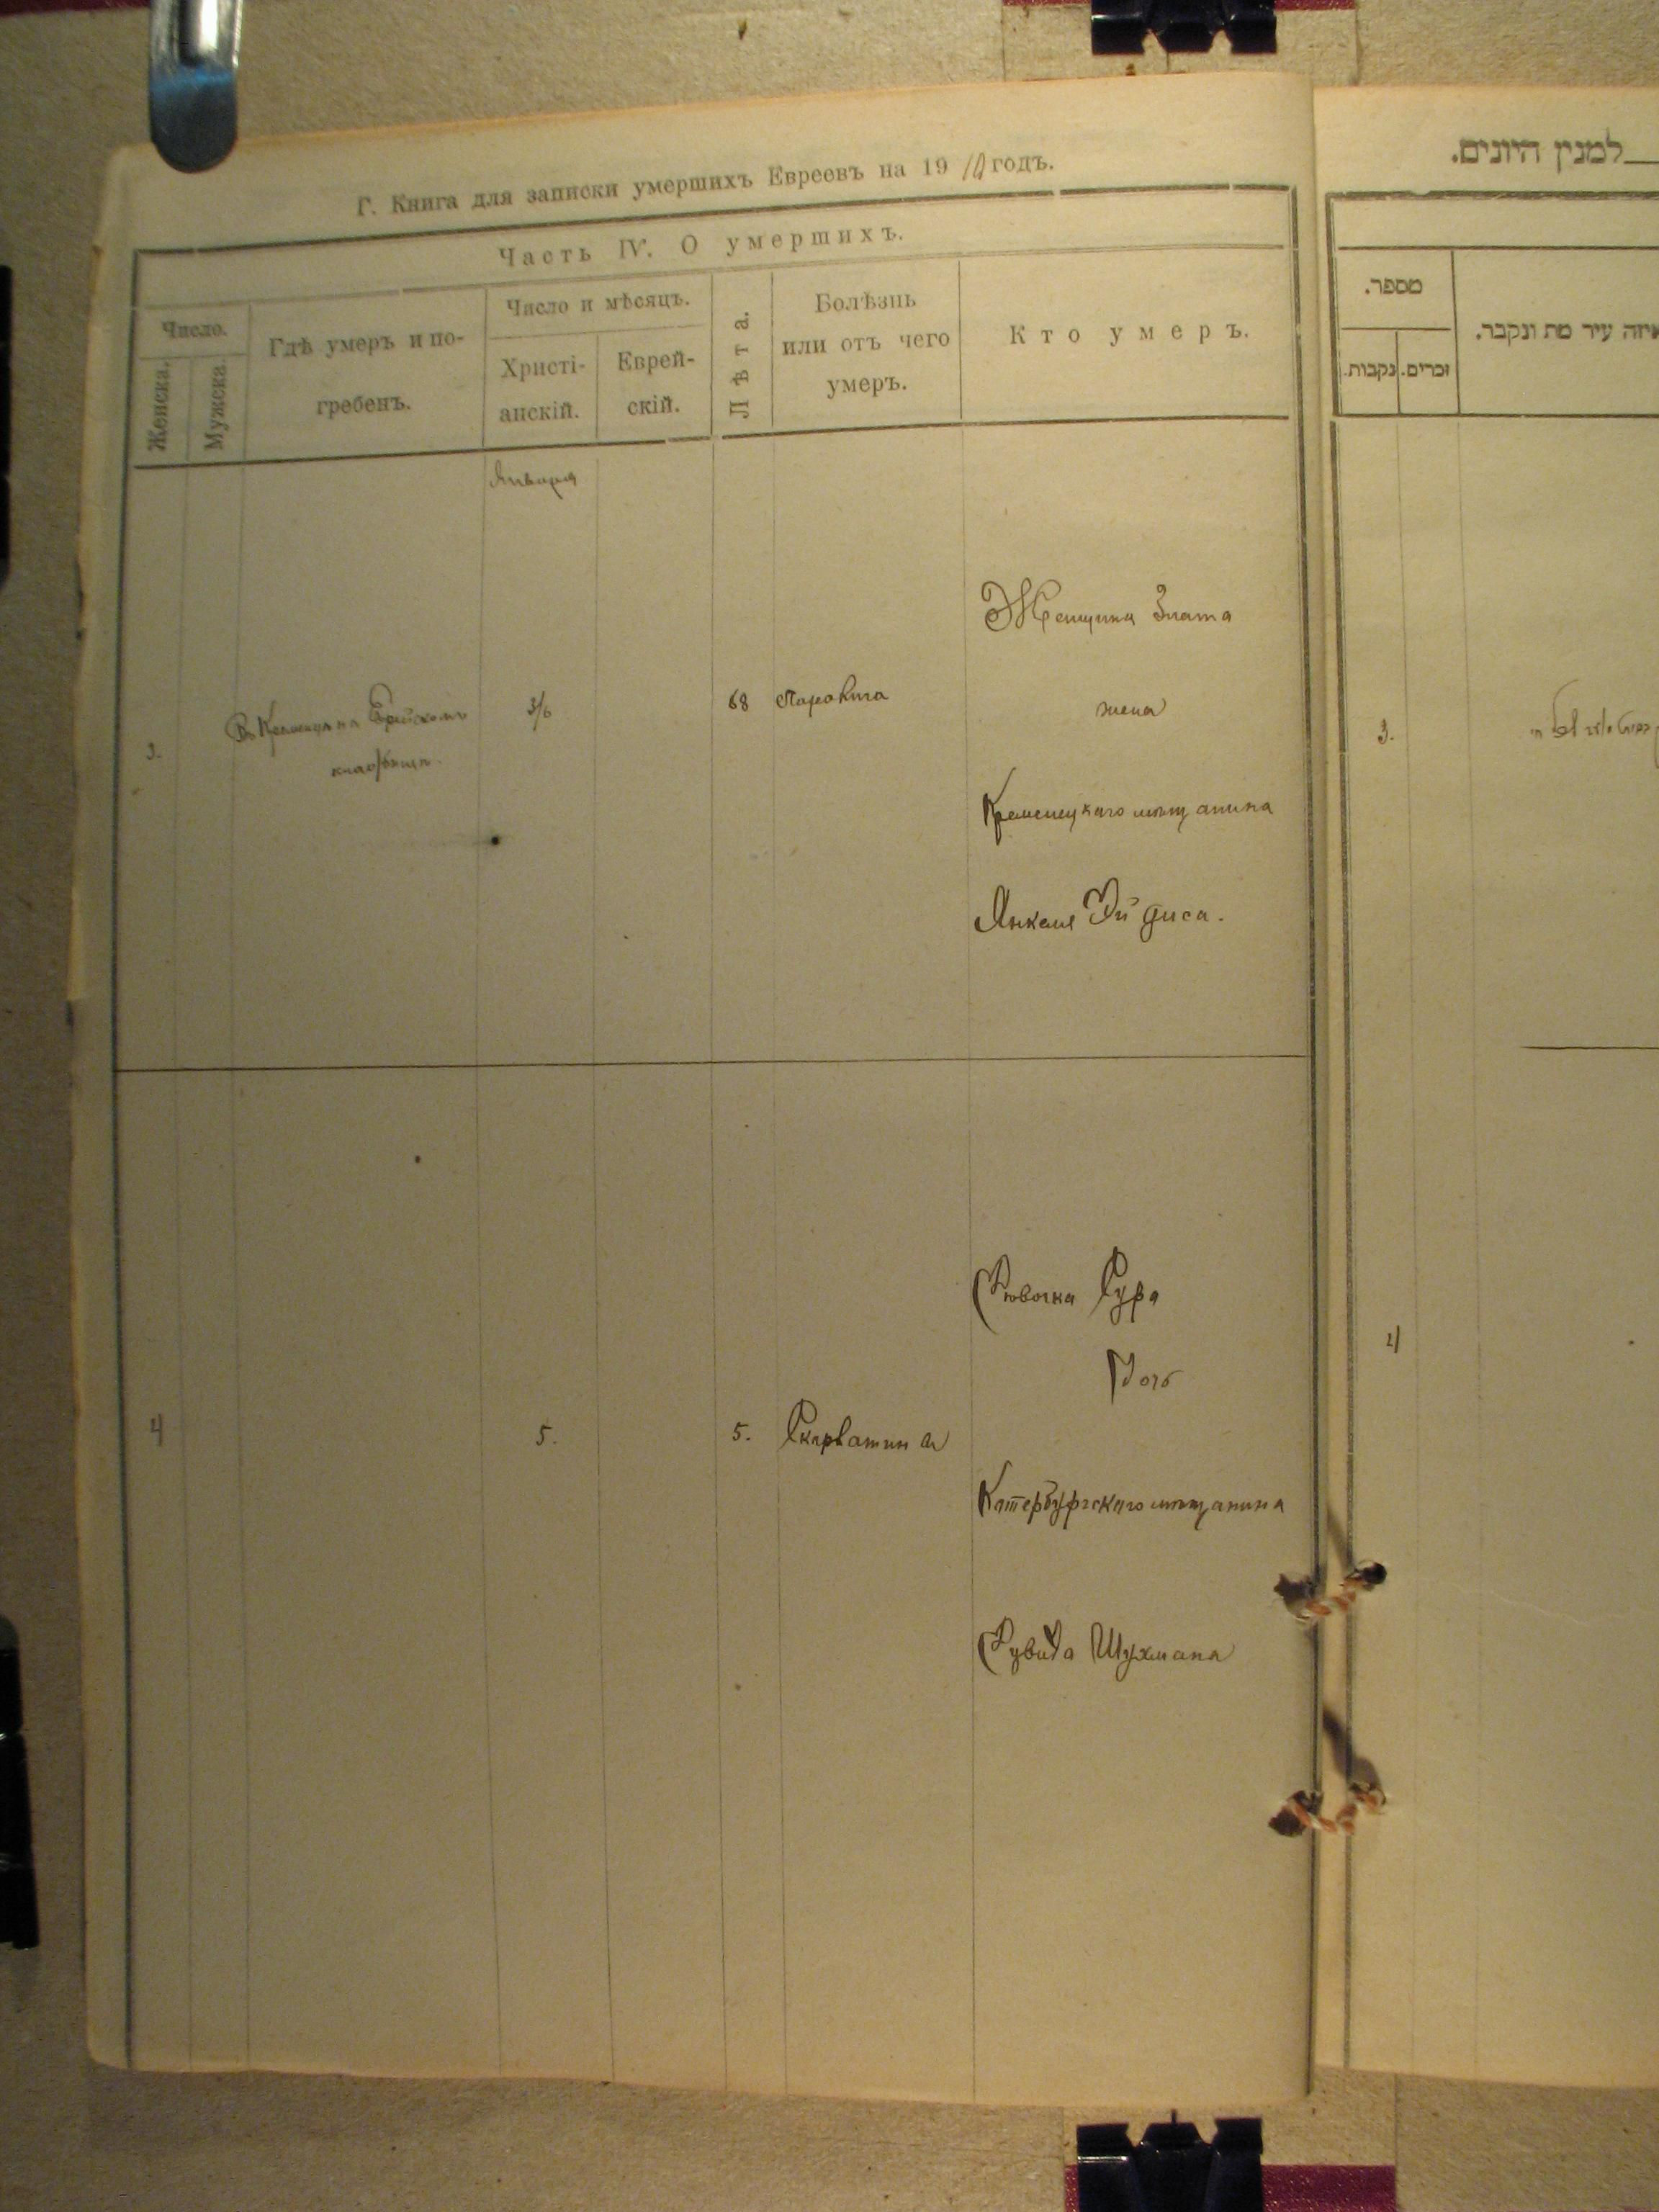 Г. Книга для записки умершихъ Евреевъ на 1910 годъ.
Часть IV. О умершихъ.
Число.
Женска.
Мужска.
Гдѣ умеръ и по-
гребенъ.
Число и мѣсяцъ.
Христі-
анскій.
Еврей-
скій.
Лѣта.
Болѣзнь
или отъ чего
умеръ.
Кто умеръ.
Января
Женщина Злата
3.
Въ Кременцѣ на Еврейскомъ
кладбищѣ.
3/6
68
жена
Кременецкаго мѣщанина
Янкеля Эйдиса.
Дѣвочка Сура
Дочь
4
5.
5.
Скарлатина
Катербургскаго мѣщанина
Шухмана
למנין היונים.
מספר.
נקבות.
זכרים.
איזה עיר מת ונקבר.
3.
4